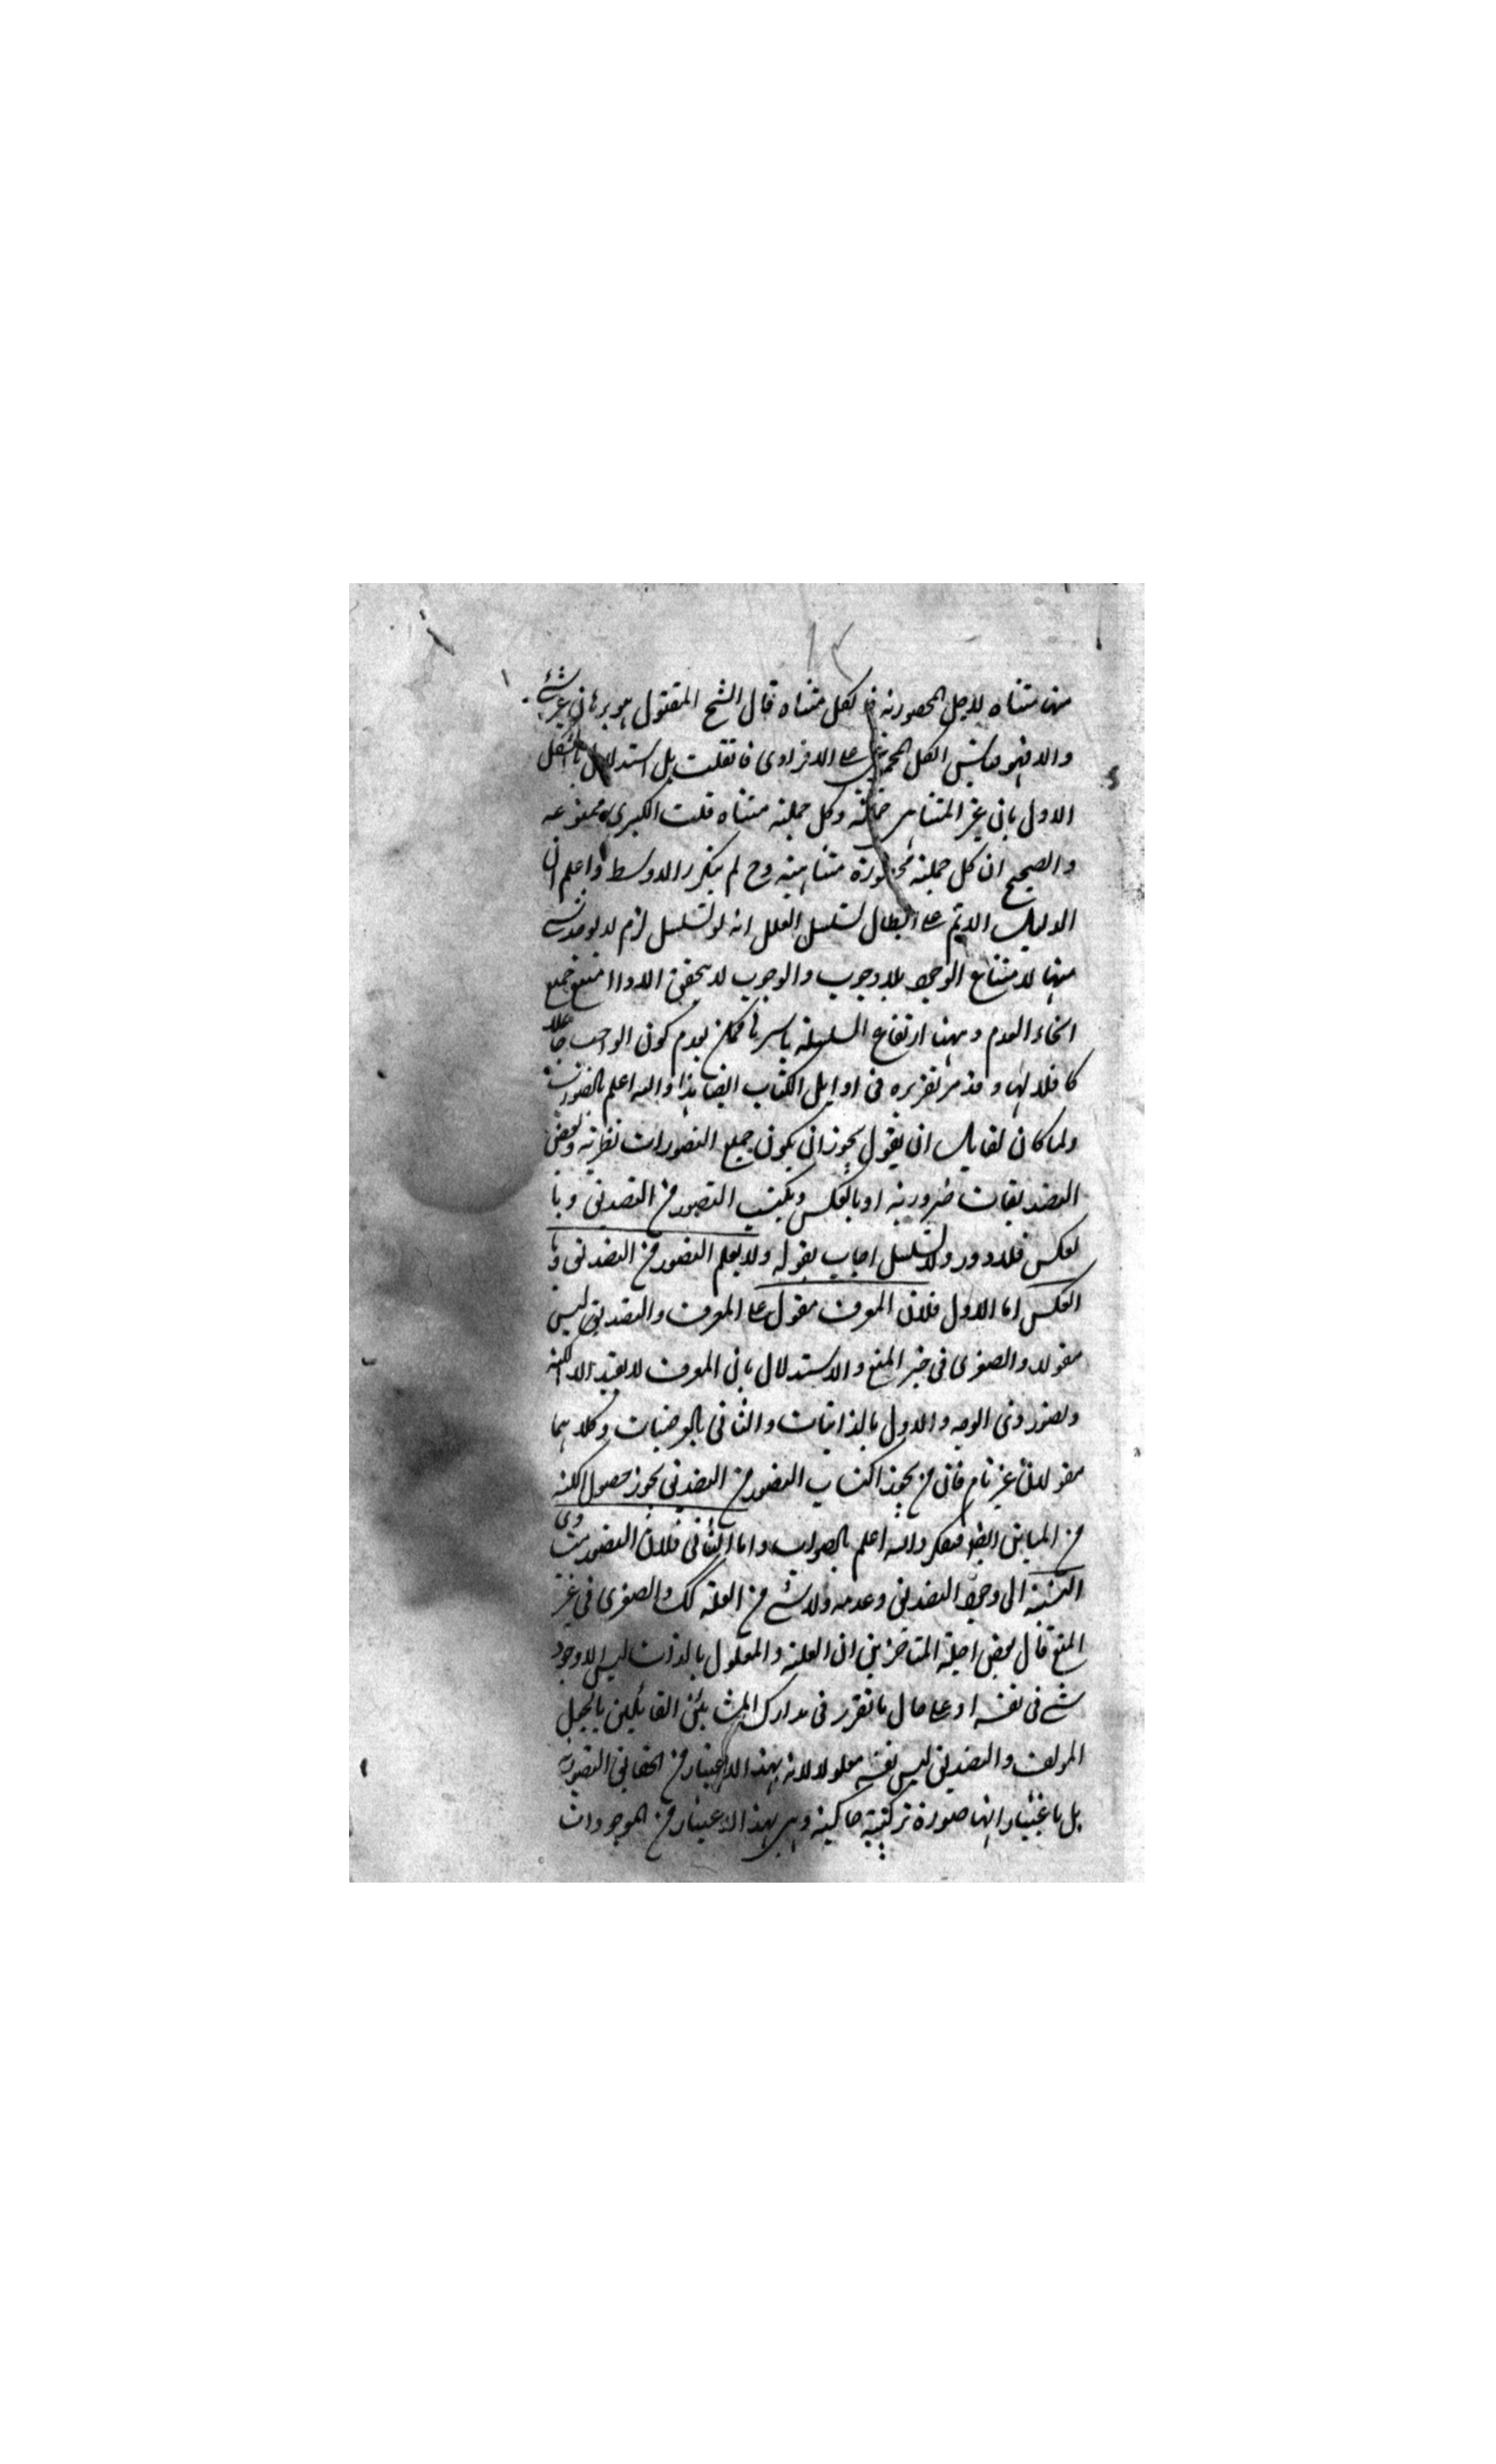 منها متناه لاجل المحصورية فالكل متناه قال الشيخ المقتول هو برهان عرشي
والا فهو قايس الكل المجموعي على الافرادي فان قلت بل استدلال بالشكل
الاول بان غير المتناهي جملة وكل جملة متناه قلت الكبرى ممنوعه
والصحيح ان كل جملة محصورة متناهية وح لم يتكرر الاوسط واعلم ان
الدليل الاتم على ابطال تسلسل العلل انه لو تسلسل لزم لا يوجد شي
منها لامتناع الوجود بلا وجوب والوجوب لا يتحقق الا اذا امتنع جميع
انحاء العدم وههنا ارتفاع السلسلة باسرها ممكن لعدم كون الواجب
كافلا لها وقد مر تقريره في اوايل الكتاب ايضا هذا والله اعلم بالصواب
ولما كان لقايل ان يقول يجوز ان يكون جميع التصورات نظرية وبعض
التصديقات ضرورية او بالعكس ويكتسب التصور من التصديق وبا
لعكس فلا دور ولا تسلسل اجاب بقوله ولا يعلم التصور من التصديق وبا
العكس اما الاول فلان المعرف مقول على المعرف والتصديق ليس
مقولا والصغرى في خبر المنع والاستدلال بان المعرف لا يفيد الا الكنه
وتصور ذى الوجه والاول بالذاتيات والثاني بالعرضيات وكلاهما
مقولان غير تام فان من يجوز اكتساب التصور من التصديق يجوز حصول الكنه
من المباين ايضا فتفكر والله اعلم بالصواب واما الثاني فلان التصور متساوى
النسبة الى وجود التصديق وعدمه ولا شئ من العلة كك والصغرى في حيز
المنع قال بعض اجلة المتاخرين ان العلة والمعلول بالذات ليس الا وجود
شي في نفسه او على حال ما تقرر في مدارك المشائين القائلين بالجعل
المولف والتصديق ليس نفسه معلولا لانه بهذا الاعتبار من الحقائق التصورية
بل باعتبار انها صورة تركيبية حاكية وهي بهذا الاعتبار من الموجودات